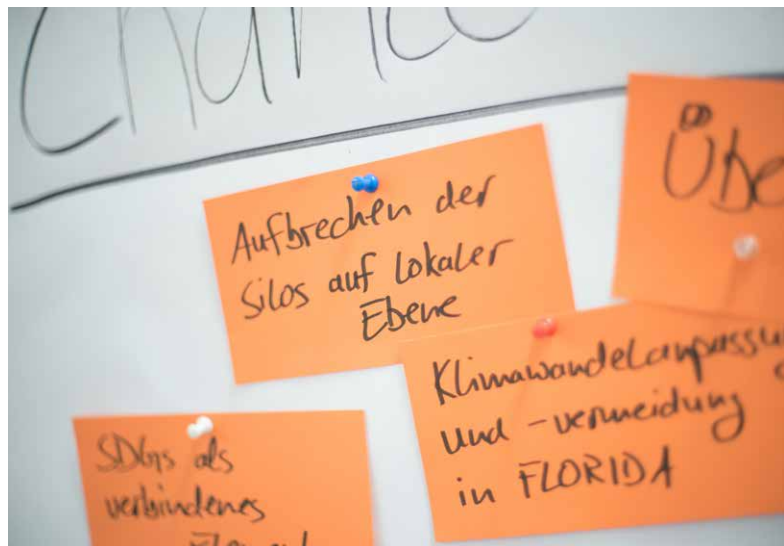 Aufbrechen der
Silos auf lokaler
Ebene
Klimawandelanpassu
und -vermeidung
in FLORIDA
SDGs als
verbindenes